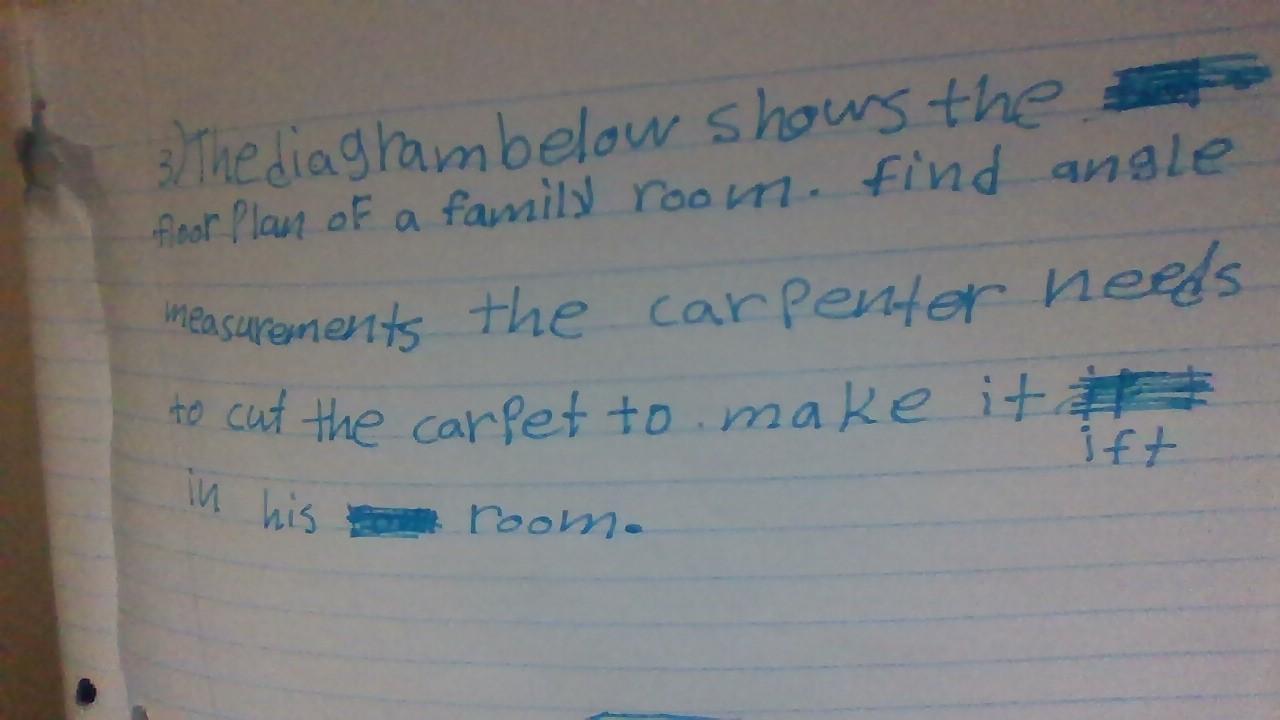 3) The diagram below shows the
floor Plan of a family room. find angle
measurements the carpenter needs
to cut the carpet to make it
ift
in his room.